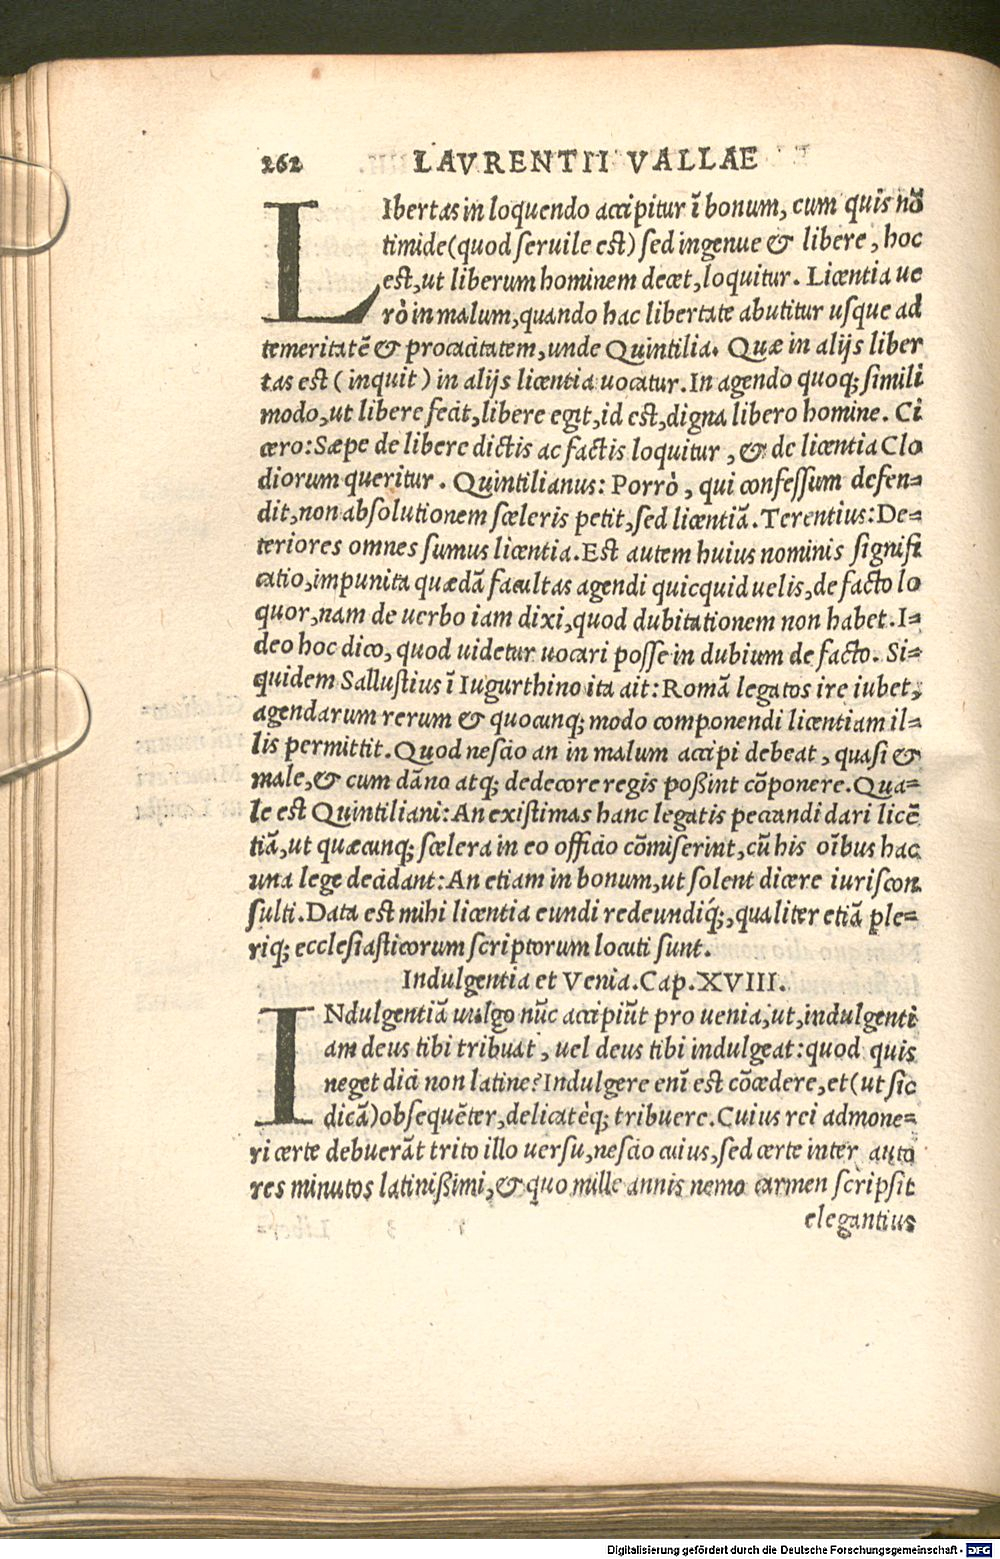 262 LAVRENTII VALLAE
LIbertas in loquendo accipitur ĩ bonum, cum quis nõ
timide (quod seruile est) sed ingenue & libere, hoc
est, ut liberum hominem decet, loquitur. Licentia ue
rò in malum, quando hac libertate abutitur usque ad
temeritatẽ & procacitatem, unde Quintilia. Quæ in alijs liber
tas est (inquit) in alijs licentia uocatur. In agendo quoq; simili
modo, ut libere fecit, libere egit, id est, digna libero homine. Ci
cero: Sæpe de libere dictis ac factis loquitur, & de licentia Clo
diorum queritur. Quintilianus: Porrò, qui confessum defen=
dit, non absolutionem sceleris petit, sed licentiã. Terentius: De=
teriores omnes sumus licentia. Est autem huius nominis signifi
catio, impunita quædã facultas agendi quicquid uelis, de facto lo
quor, nam de uerbo iam dixi, quod dubitationem non habet. I=
deo hoc dico, quod uidetur uocari posse in dubium de facto. Si=
quidem Sallustius ĩ Iugurthino ita ait: Romã legatos ire iubet,
agendarum rerum & quocunq; modo componendi licentiam il=
lis permittit. Quod nescio an in malum accipi debeat, quasi &
male, & cum dãno atq; dedecore regis poßint cõponere. Qua=
le est Quintiliani: An existimas hanc legatis peccandi dari licẽ
tiã, ut quæcunq; scelera in eo officio cõmiserint, cũ his oĩbus hac
una lege decidant: An etiam in bonum, ut solent dicere iuriscon
sulti. Data est mihi licentia eundi redeundiq́;, qualiter etiã ple=
riq; ecclesiasticorum scriptorum locuti sunt.
Indulgentia et Venia. Cap. XVIII.
INdulgentiã uulgo nũc accipiũt pro uenia, ut, indulgenti
am deus tibi tribuat, uel deus tibi indulgeat: quod quis
neget dici non latine? Indulgere enĩ est cõcedere, et (ut sic
dicã) obsequẽter, delicatèq; tribuere. Cuius rei admone=
ri certe debuerãt trito illo uersu, nescio cuius, sed certe inter auto
res minutos latinißimi, & quo mille annis nemo carmen scripsit
elegantius
Digitalisierung gefördert durch die Deutsche Forschungsgemeinschaft - DFG